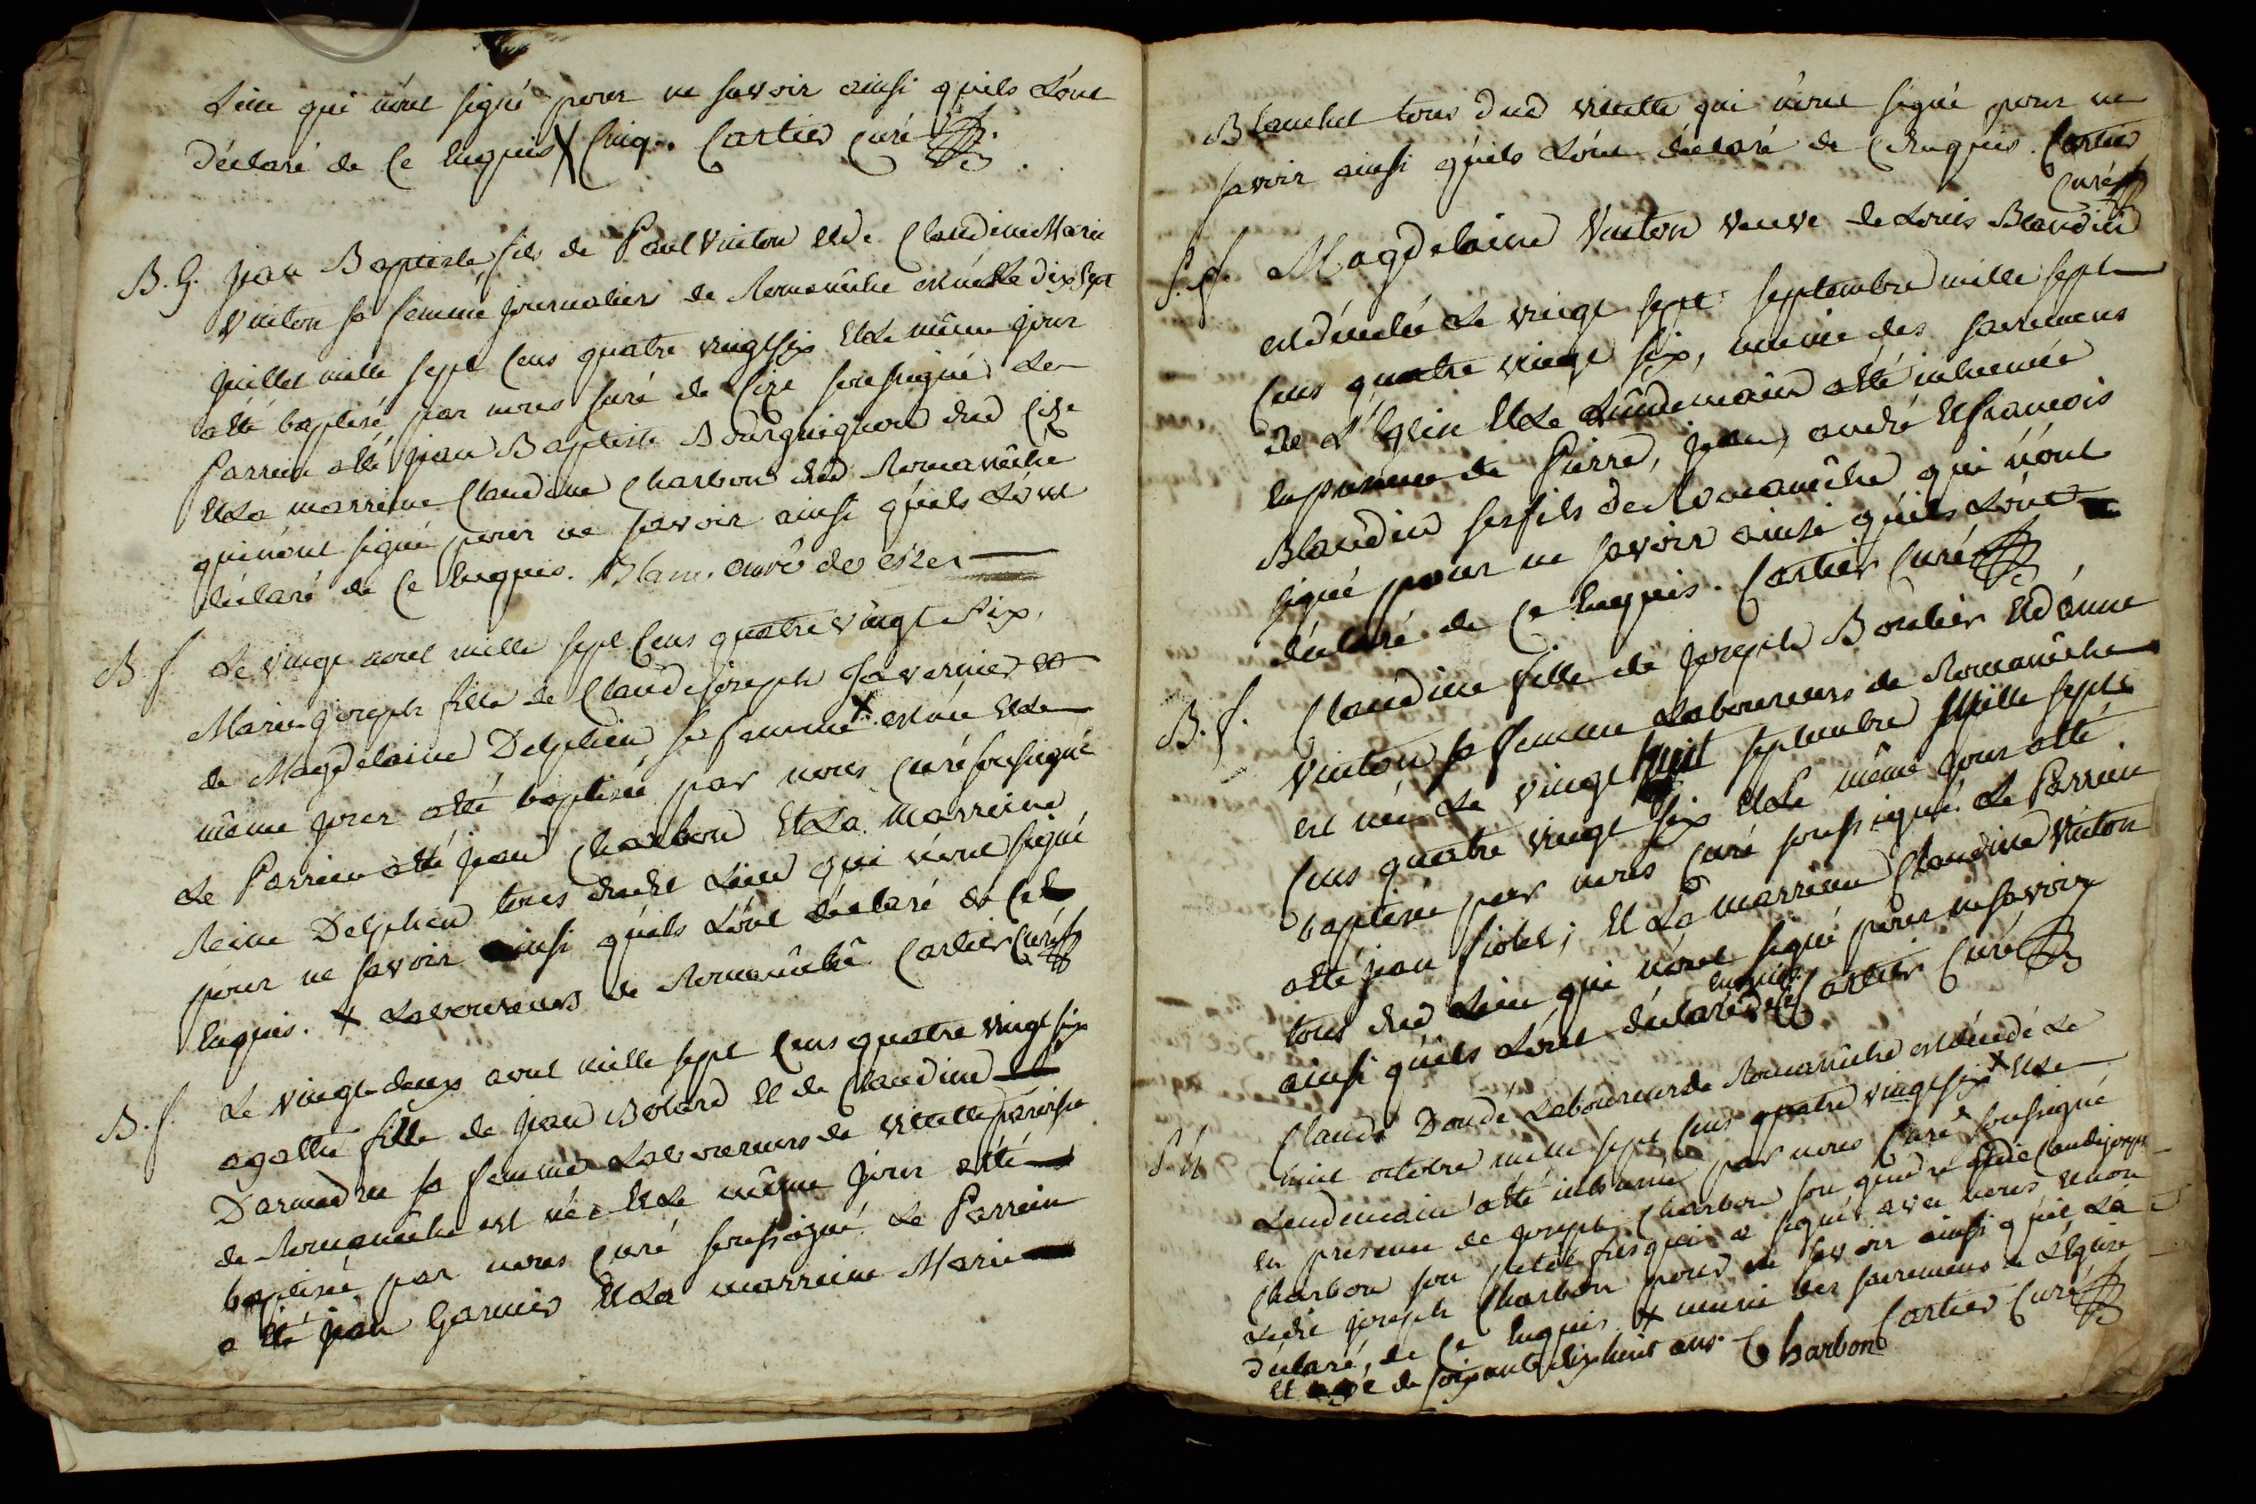 Lieu qui n'ont signé pour ne savoir ainsi quils L'ont
déclaré de Ce Enquis X Cinq. Cartier Curé
B. G. jean Baptiste fils de Paul Vuiton Et de Claudine Marie
Vuiton sa femme journaliers de Romanêche est né Le dix sept
juillet mille sept Cens quatre vingt six Et Le même jour
a Eté baptisé par nous Curé de Cize soussigné Le
Parrein a Eté jean Baptiste Bourguignon dud Cize
Et La marreine Claudine Charbon dud Romanêche
qui n'ont signé pour ne savoir ainsi quils L'ont
déclaré de Ce Enquis. Blanc, curé de cize
B. f. Le vingt aout mille sept Cens quatre vingt Six,
Marie joseph fille de Claude joseph et
de Magdelaine Delphin sa femme X est née Et Le
même jour a Eté baptisée par nous Curé soussigné
Le Parrein a Eté jean Charbon Et La Marreine
Reine Delphin tous dudit Lieu qui n'ont signé
pour ne savoir ainsi quils L'ont déclaré de Ce
Enquis. X Laboureurs de Romanêche Cartier Curé
B. f. Le vingt deux aout mille sept Cens quatre vingt six
agathe fille de jean Bolard Et de Claudine
sa femme Laboureurs de vilette paroisse
de Romanêche est née Et Le même jour a Eté
baptisée par nous Curé soussigné Le Parrein
a Eté jean Garnier Et La marreine Marie
Blanchet tous dud vilette qui n'ont signé pour ne
savoir ainsi quils L'ont déclaré de Ce Enquis. Cartier
Curé
S. f. Magdelaine Vuiton veuve de Louis Blandin
est décédée Le vingt sept septembre mille sept
Cens quatre vingt six, munie des sacremens
de L'Eglise Et Le Lendemain a Eté inhumée
En présence de Pierre, jean, andré Et francois
Blandin ses fils de Romanêche qui n'ont
signé pour ne savoir ainsi quils L'ont
déclaré de Ce Enquis. Cartier Curé
B. f. Claudine fille de joseph Boulier Et d'anne
Vuiton sa femme Laboureurs de Romanêche
est née Le vingt huit septembre Mille sept
Cens quatre vingt six Et Le même jour a Eté
baptisée par nous Curé soussigné Le Parrein
a Eté jean ; Et La marreine Claudine Vuiton
tous dud Lieu qui n'ont signé pour ne savoir
Enquis
ainsi quils L'ont déclaré de Ce Cartier Curé
S. h. Claude Doudé Laboureur de Romanêche est décédé Le
huit octobre mille sept Cens quatre vingt six X Et Le
Lendemain a Eté inhumé par nous Curé soussigné
En présence de joseph Charbon son gendre Et de Claude joseph
Charbon son petit fils qui a signé avec nous Et non
Ledit joseph Charbon pour ne savoir ainsi quil L'a
déclaré, de Ce Enquis X muni des sacremens de L'Eglise
Et agé de soixante dix huit ans. Charbon Cartier Curé